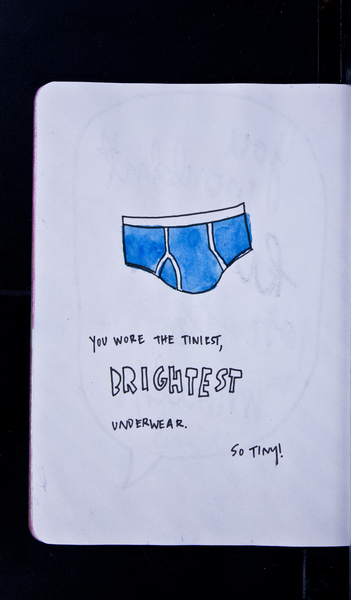 YOU WORE THE TINIEST,
BRIGHTEST
UNDERWEAR.
SO TINY!